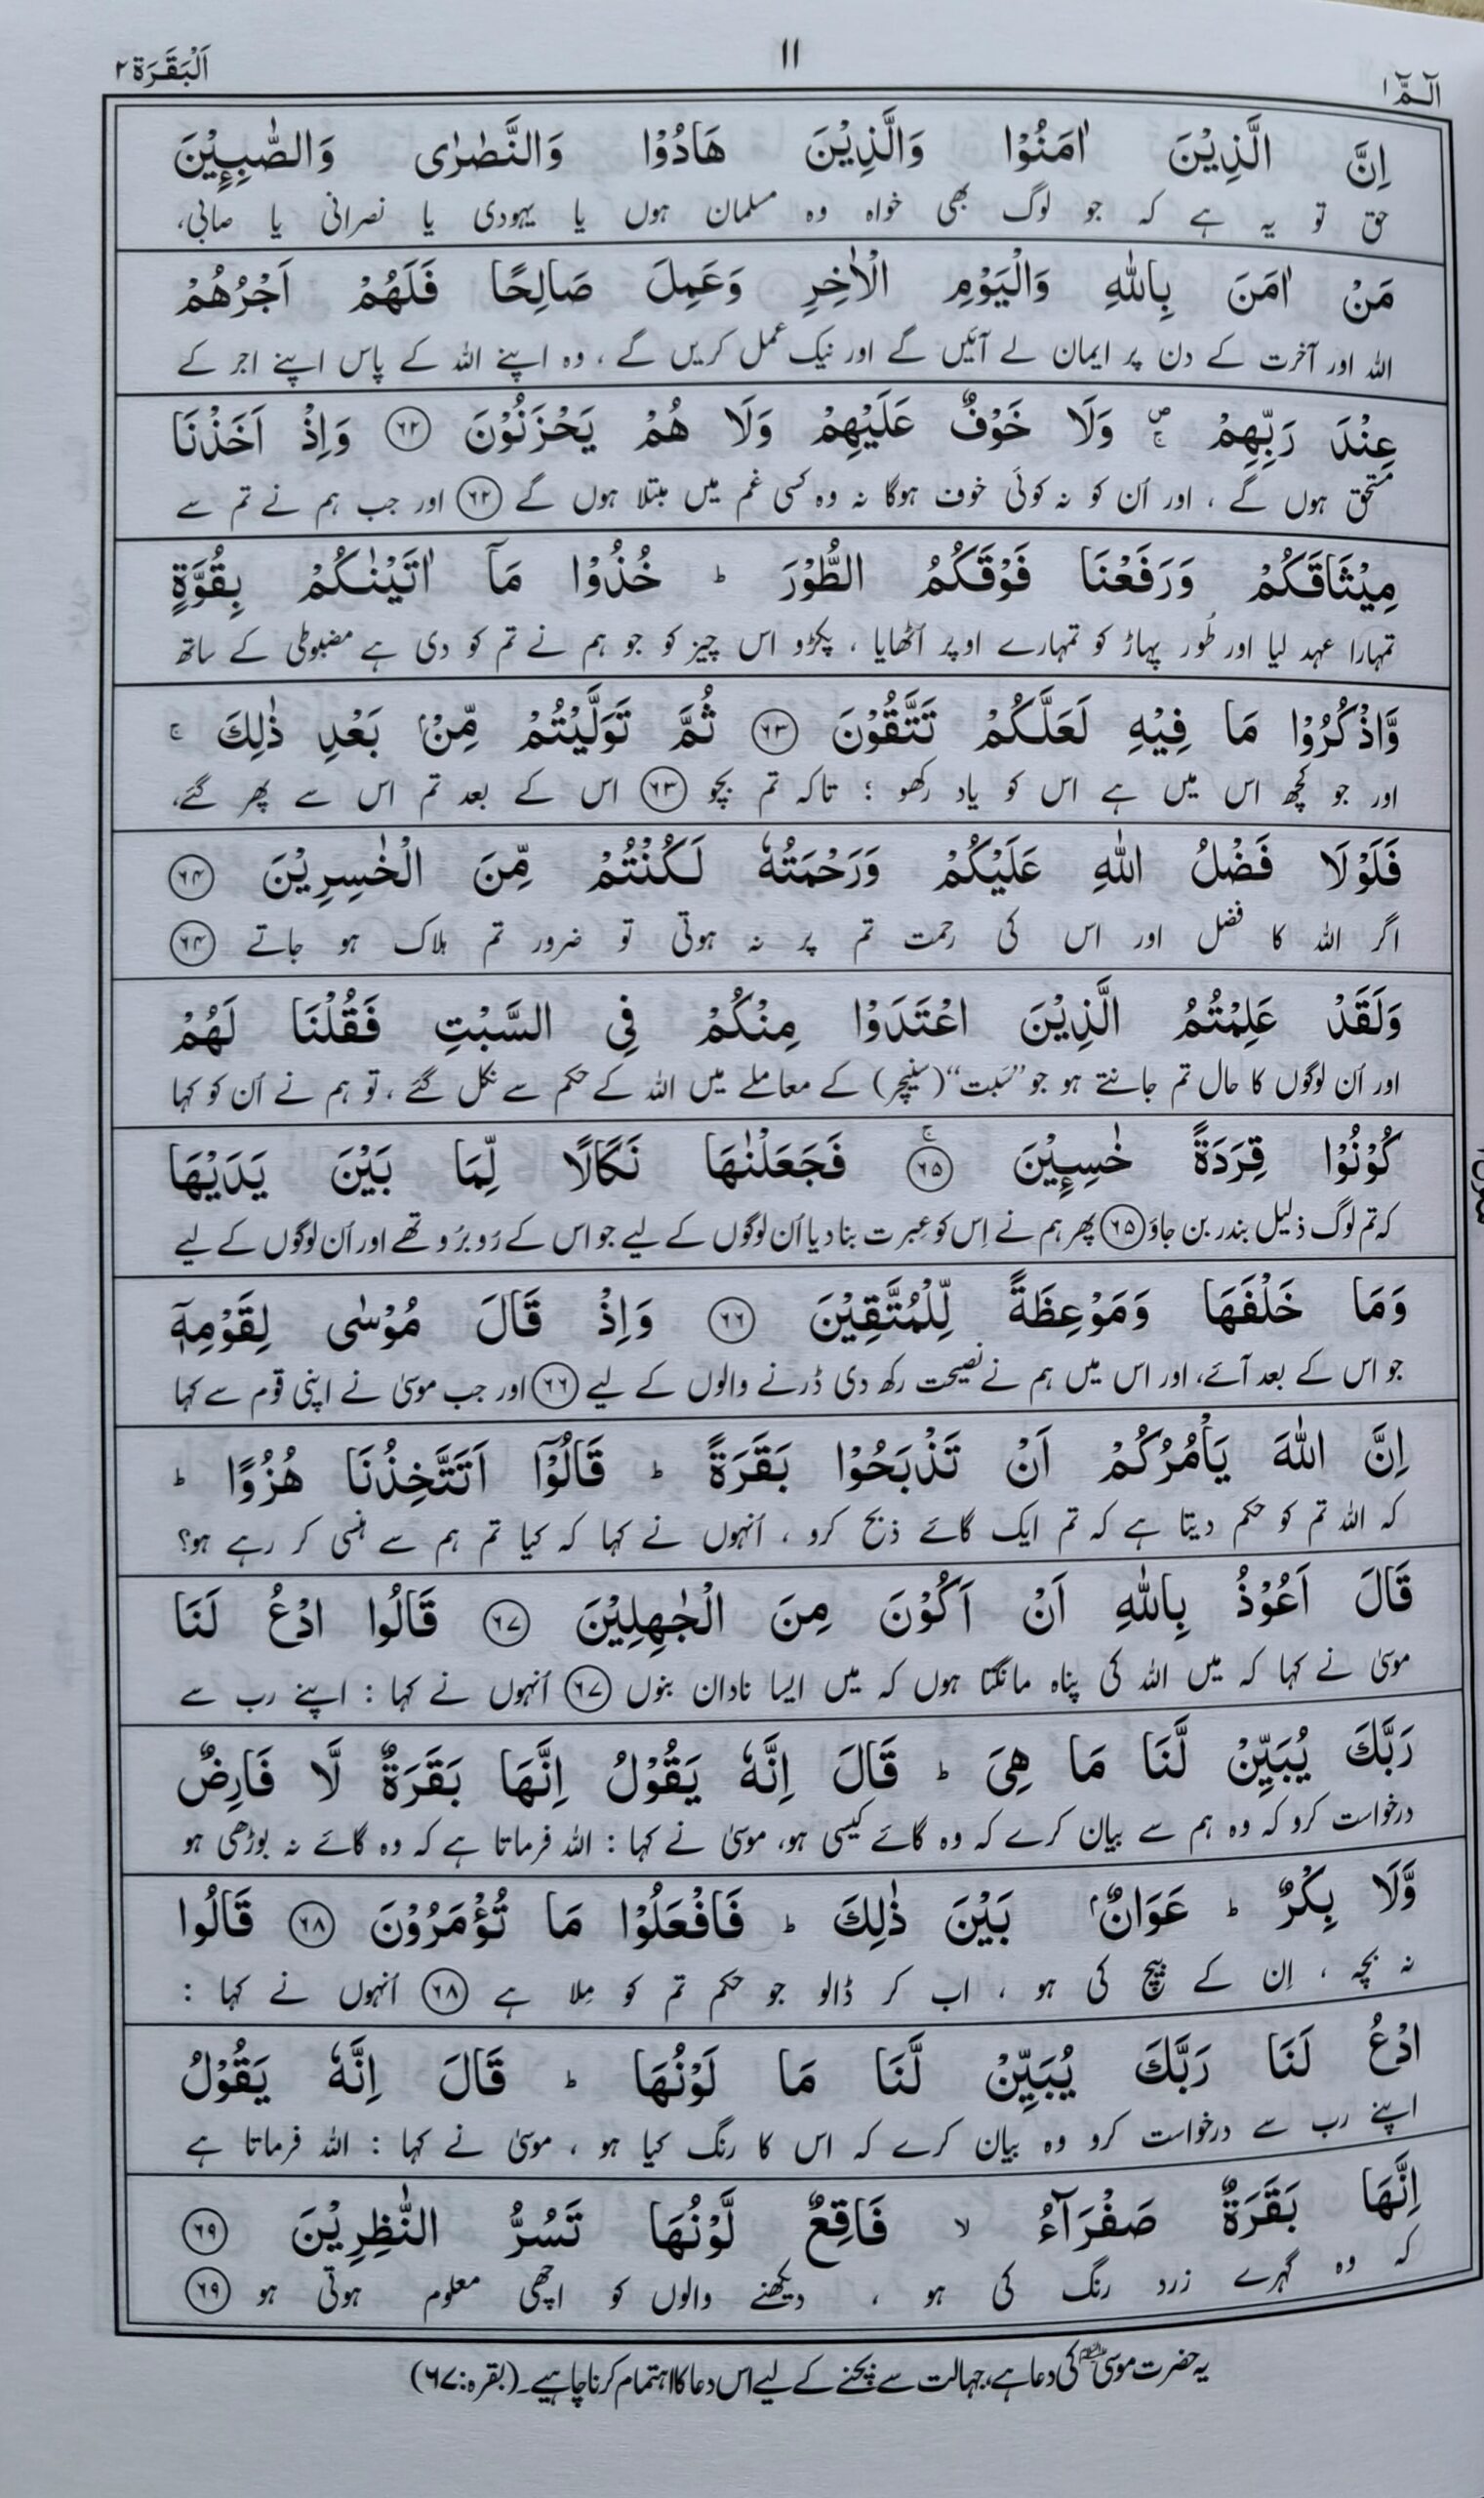 الٓمّٓ ۱
۱۱
اَلْبَقَرَة ۲
اِنَّ الَّذِيْنَ اٰمَنُوْا وَالَّذِيْنَ هَادُوْا وَالنَّصٰرٰى وَالصّٰبِـِٕيْنَ
حق تو یہ ہے کہ جو لوگ بھی خواہ وہ مسلمان ہوں یا یہودی یا نصرانی یا صابی،
مَنْ اٰمَنَ بِاللّٰهِ وَالْيَوْمِ الْاٰخِرِ وَعَمِلَ صَالِحًا فَلَهُمْ اَجْرُهُمْ
اللہ اور آخرت کے دن پر ایمان لے آئیں گے اور نیک عمل کریں گے ، وہ اپنے اللہ کے پاس اپنے اجر کے
عِنْدَ رَبِّهِمْ ۚۖ وَلَا خَوْفٌ عَلَيْهِمْ وَلَا هُمْ يَحْزَنُوْنَ ۶۲ وَاِذْ اَخَذْنَا
مستحق ہوں گے ، اور اُن کو نہ کوئی خوف ہوگا نہ وہ کسی غم میں مبتلا ہوں گے ۶۲ اور جب ہم نے تم سے
مِيْثَاقَكُمْ وَرَفَعْنَا فَوْقَكُمُ الطُّوْرَ ؕ خُذُوْا مَآ اٰتَيْنٰكُمْ بِقُوَّةٍ
تمہارا عہد لیا اور طُور پہاڑ کو تمہارے اوپر اُٹھایا ، پکڑو اس چیز کو جو ہم نے تم کو دی ہے مضبوطی کے ساتھ
وَّاذْكُرُوْا مَا فِيْهِ لَعَلَّكُمْ تَتَّقُوْنَ ۶۳ ثُمَّ تَوَلَّيْتُمْ مِّنْۢ بَعْدِ ذٰلِكَ ۚ
اور جو کچھ اس میں ہے اس کو یاد رکھو ؛ تاکہ تم بچو ۶۳ اس کے بعد تم اس سے پھر گئے،
فَلَوْلَا فَضْلُ اللّٰهِ عَلَيْكُمْ وَرَحْمَتُهٗ لَكُنْتُمْ مِّنَ الْخٰسِرِيْنَ ۶۴
اگر اللہ کا فضل اور اس کی رحمت تم پر نہ ہوتی تو ضرور تم ہلاک ہو جاتے ۶۴
وَلَقَدْ عَلِمْتُمُ الَّذِيْنَ اعْتَدَوْا مِنْكُمْ فِى السَّبْتِ فَقُلْنَا لَهُمْ
اور اُن لوگوں کا حال تم جانتے ہو جو ”سَبت“ (سنیچر) کے معاملے میں اللہ کے حکم سے نکل گئے ، تو ہم نے اُن کو کہا
كُوْنُوْا قِرَدَةً خٰسِـِٕيْنَ ۶۵ ۚ فَجَعَلْنٰهَا نَكَالًا لِّمَا بَيْنَ يَدَيْهَا
کہ تم لوگ ذلیل بندر بن جاؤ ۶۵ پھر ہم نے اِس کو عبرت بنا دیا اُن لوگوں کے لیے جو اس کے رُوبرُو تھے اور اُن لوگوں کے لیے
وَمَا خَلْفَهَا وَمَوْعِظَةً لِّلْمُتَّقِيْنَ ۶۶ وَاِذْ قَالَ مُوْسٰى لِقَوْمِهٖٓ
جو اس کے بعد آئے، اور اس میں ہم نے نصیحت رکھ دی ڈرنے والوں کے لیے ۶۶ اور جب موسیٰ نے اپنی قوم سے کہا
اِنَّ اللّٰهَ يَاْمُرُكُمْ اَنْ تَذْبَحُوْا بَقَرَةً ؕ قَالُوْٓا اَتَتَّخِذُنَا هُزُوًا ؕ
کہ اللہ تم کو حکم دیتا ہے کہ تم ایک گائے ذبح کرو ، اُنہوں نے کہا کہ کیا تم ہم سے ہنسی کر رہے ہو؟
قَالَ اَعُوْذُ بِاللّٰهِ اَنْ اَكُوْنَ مِنَ الْجٰهِلِيْنَ ۶۷ قَالُوا ادْعُ لَنَا
موسیٰ نے کہا کہ میں اللہ کی پناہ مانگتا ہوں کہ میں ایسا نادان بنوں ۶۷ اُنہوں نے کہا : اپنے رب سے
رَبَّكَ يُبَيِّنْ لَّنَا مَا هِىَ ؕ قَالَ اِنَّهٗ يَقُوْلُ اِنَّهَا بَقَرَةٌ لَّا فَارِضٌ
درخواست کرو کہ وہ ہم سے بیان کرے کہ وہ گائے کیسی ہو، موسیٰ نے کہا : اللہ فرماتا ہے کہ وہ گائے نہ بوڑھی ہو
وَّلَا بِكْرٌ ؕ عَوَانٌۢ بَيْنَ ذٰلِكَ ؕ فَافْعَلُوْا مَا تُؤْمَرُوْنَ ۶۸ قَالُوا
نہ بچہ ، اِن کے بیچ کی ہو ، اب کر ڈالو جو حکم تم کو مِلا ہے ۶۸ اُنہوں نے کہا :
ادْعُ لَنَا رَبَّكَ يُبَيِّنْ لَّنَا مَا لَوْنُهَا ؕ قَالَ اِنَّهٗ يَقُوْلُ
اپنے رب سے درخواست کرو وہ بیان کرے کہ اس کا رنگ کیا ہو ، موسیٰ نے کہا : اللہ فرماتا ہے
اِنَّهَا بَقَرَةٌ صَفْرَآءُ ۙ فَاقِعٌ لَّوْنُهَا تَسُرُّ النّٰظِرِيْنَ ۶۹
کہ وہ گہرے زرد رنگ کی ہو ، دیکھنے والوں کو اچھی معلوم ہوتی ہو ۶۹
یہ حضرت موسیٰ علیہ السلام کی دعا ہے، جہالت سے بچنے کے لیے اس دعا کا اہتمام کرنا چاہیے۔ (بقرہ: ۶۷)